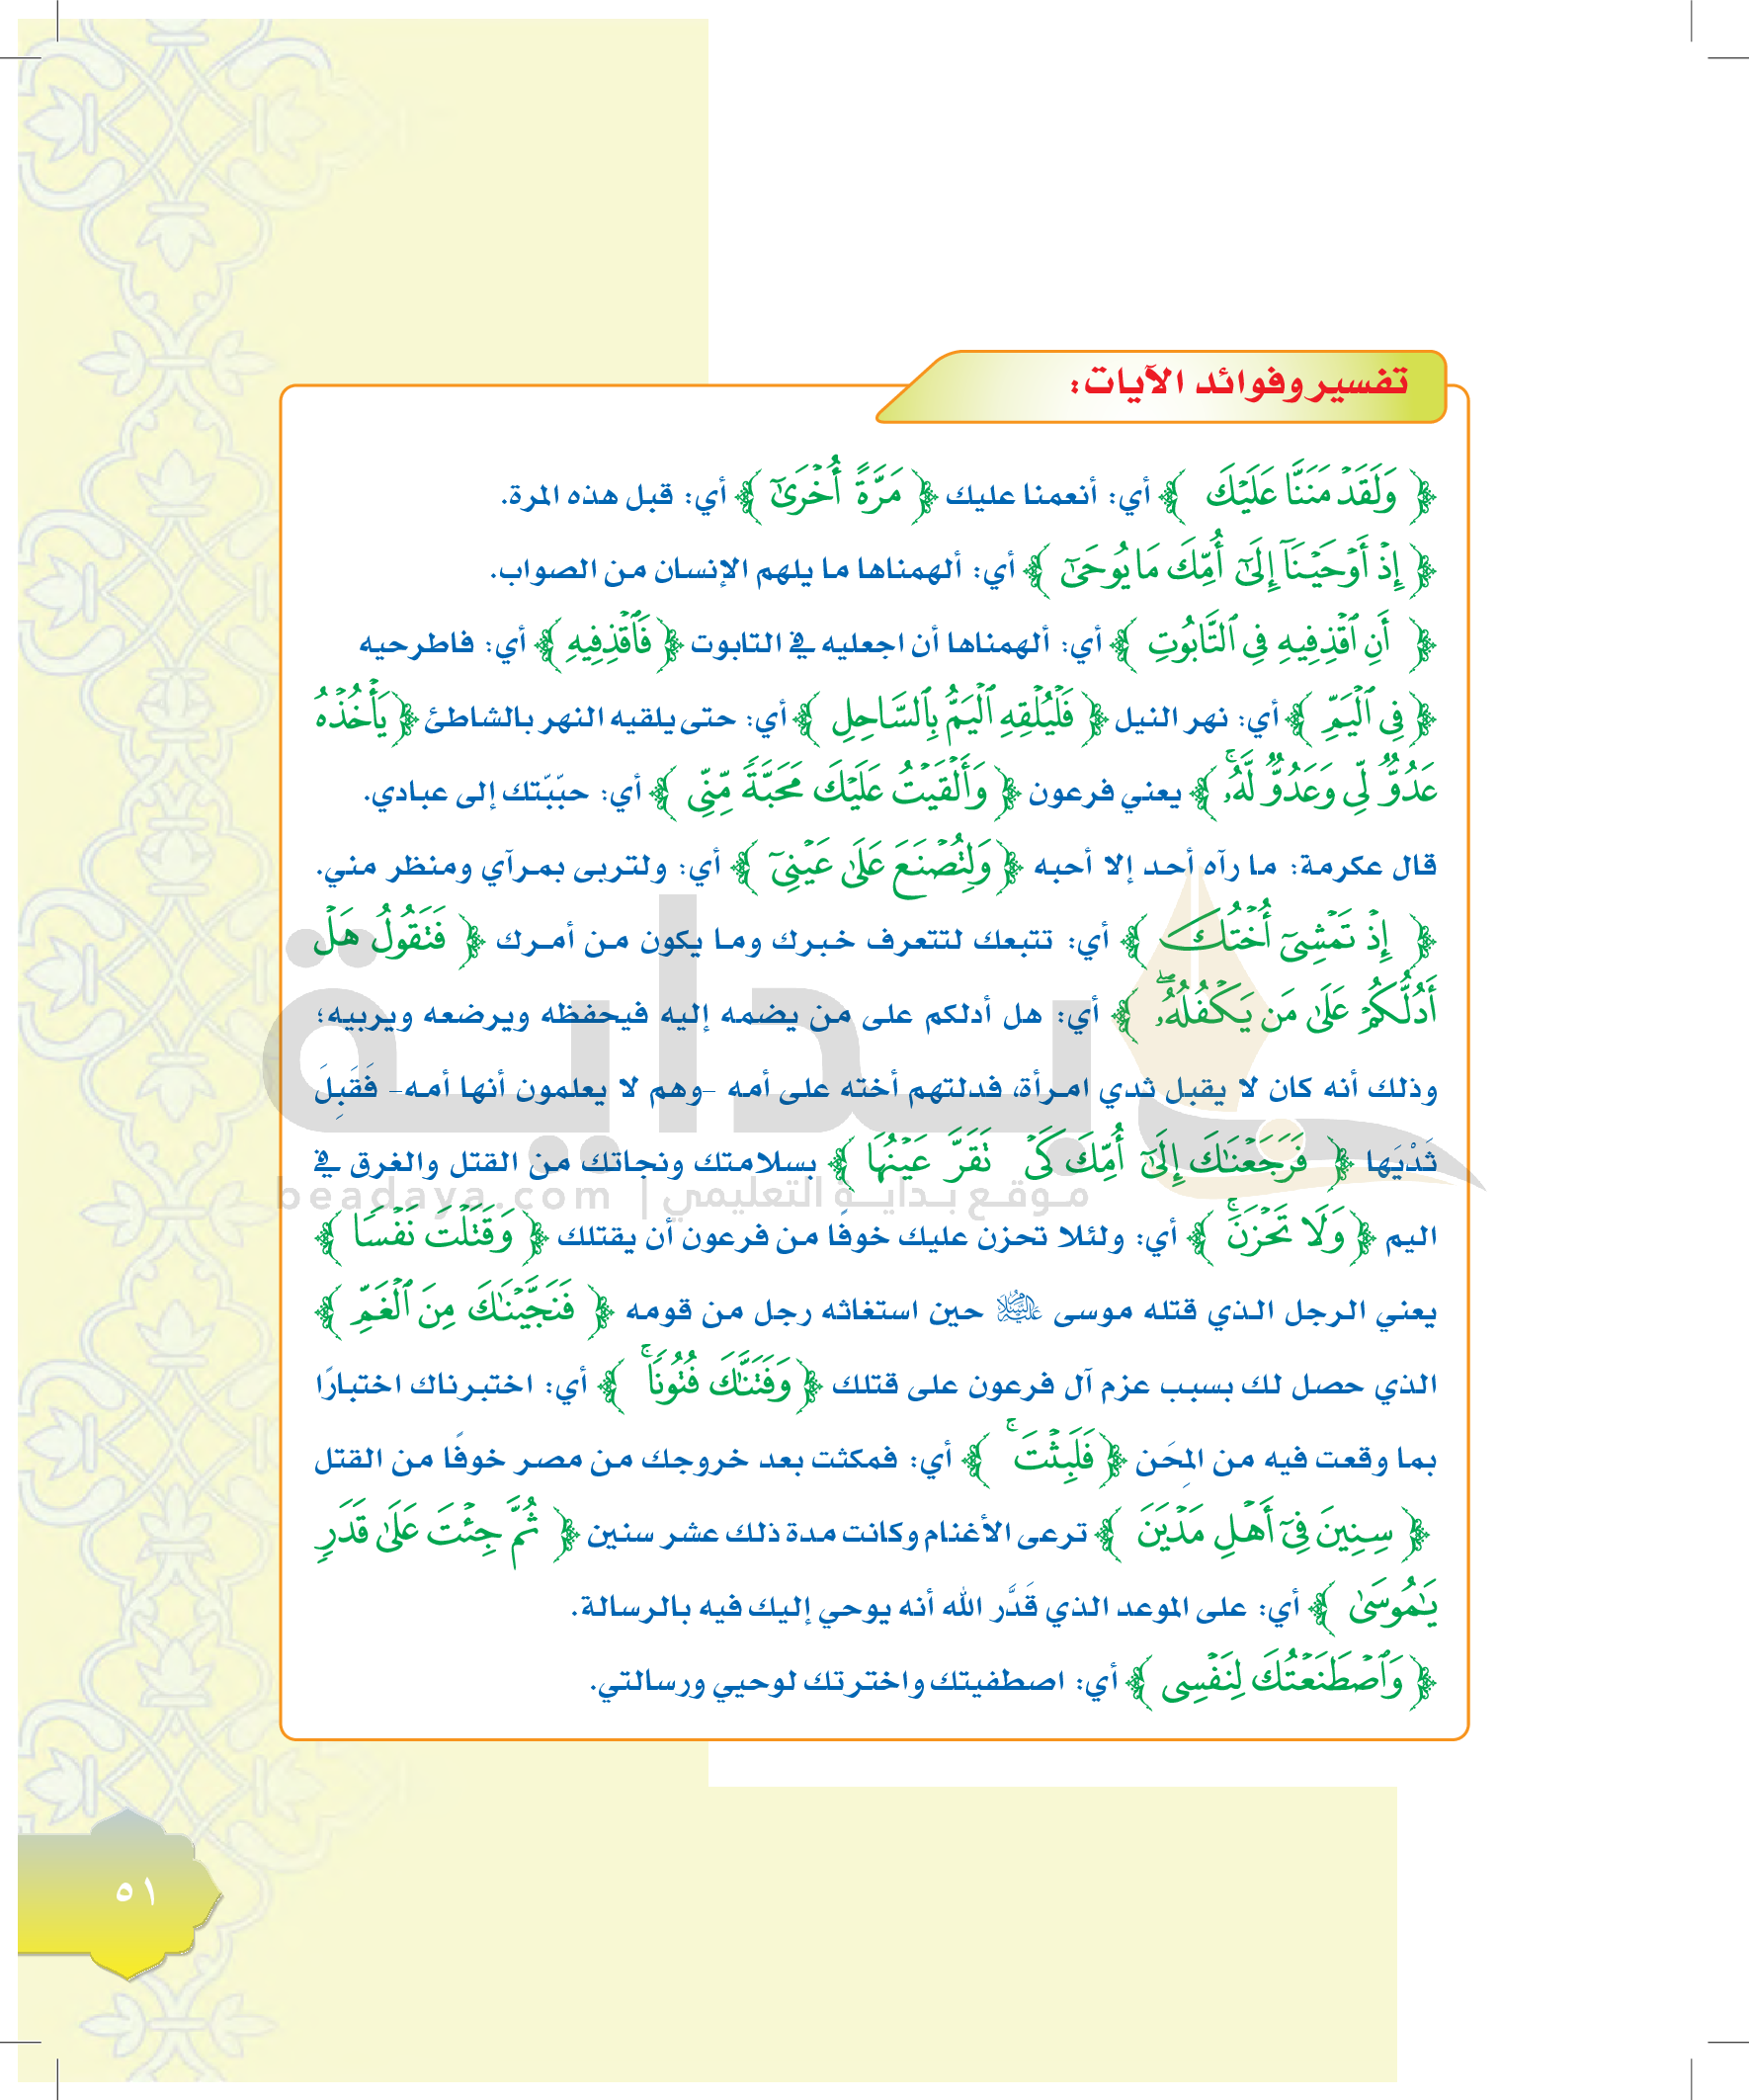 تفسير وفوائد الآيات:
﴿ وَلَقَدۡ مَنَنَّا عَلَيۡكَ ﴾ أي: أنعمنا عليك ﴿ مَرَّةً أُخۡرَىٰٓ ﴾ أي: قبل هذه المرة.
﴿ إِذۡ أَوۡحَيۡنَآ إِلَىٰٓ أُمِّكَ مَا يُوحَىٰٓ ﴾ أي: ألهمناها ما يلهم الإنسان من الصواب.
﴿ أَنِ ٱقۡذِفِيهِ فِي ٱلتَّابُوتِ ﴾ أي: ألهمناها أن اجعليه في التابوت ﴿ فَٱقۡذِفِيهِ ﴾ أي: فاطرحيه
﴿ فِي ٱلۡيَمِّ ﴾ أي: نهر النيل ﴿ فَلۡيُلۡقِهِ ٱلۡيَمُّ بِٱلسَّاحِلِ ﴾ أي: حتى يلقيه النهر بالشاطئ ﴿ يَأۡخُذۡهُ
عَدُوّٞ لِّي وَعَدُوّٞ لَّهُۥۚ ﴾ يعني فرعون ﴿ وَأَلۡقَيۡتُ عَلَيۡكَ مَحَبَّةٗ مِّنِّي ﴾ أي: حبّبّتك إلى عبادي.
قال عكرمة: ما رآه أحد إلا أحبه ﴿ وَلِتُصۡنَعَ عَلَىٰ عَيۡنِيٓ ﴾ أي: ولتربى بمرآي ومنظر مني.
﴿ إِذۡ تَمۡشِيٓ أُخۡتُكَ ﴾ أي: تتبعك لتتعرف خبرك وما يكون من أمرك ﴿ فَتَقُولُ هَلۡ
أَدُلُّكُمۡ عَلَىٰ مَن يَكۡفُلُهُۥۖ ﴾ أي: هل أدلكم على من يضمه إليه فيحفظه ويرضعه ويربيه؛
وذلك أنه كان لا يقبل ثدي امرأة، فدلتهم أخته على أمه -وهم لا يعلمون أنها أمه- فَقَبِلَ
ثَدْيَها ﴿ فَرَجَعۡنَٰكَ إِلَىٰٓ أُمِّكَ كَيۡ تَقَرَّ عَيۡنُهَا ﴾ بسلامتك ونجاتك من القتل والغرق في
اليم ﴿ وَلَا تَحۡزَنَۚ ﴾ أي: ولئلا تحزن عليك خوفًا من فرعون أن يقتلك ﴿ وَقَتَلۡتَ نَفۡسٗا ﴾
يعني الرجل الذي قتله موسى عليه السلام حين استغاثه رجل من قومه ﴿ فَنَجَّيۡنَٰكَ مِنَ ٱلۡغَمِّ ﴾
الذي حصل لك بسبب عزم آل فرعون على قتلك ﴿ وَفَتَنَّٰكَ فُتُونٗاۚ ﴾ أي: اختبرناك اختبارًا
بما وقعت فيه من المِحَن ﴿ فَلَبِثۡتَۚ ﴾ أي: فمكثت بعد خروجك من مصر خوفًا من القتل
﴿ سِنِينَ فِيٓ أَهۡلِ مَدۡيَنَ ﴾ ترعى الأغنام وكانت مدة ذلك عشر سنين ﴿ ثُمَّ جِئۡتَ عَلَىٰ قَدَرٖ
يَٰمُوسَىٰ ﴾ أي: على الموعد الذي قَدَّر الله أنه يوحي إليك فيه بالرسالة.
﴿ وَٱصۡطَنَعۡتُكَ لِنَفۡسِي ﴾ أي: اصطفيتك واخترتك لوحيي ورسالتي.
بداية
موقع بداية التعليمي | beadaya.com
٥١